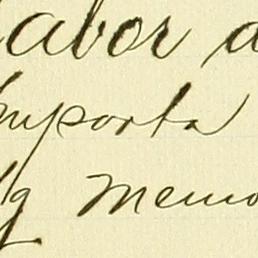 labor a
importa
g memo